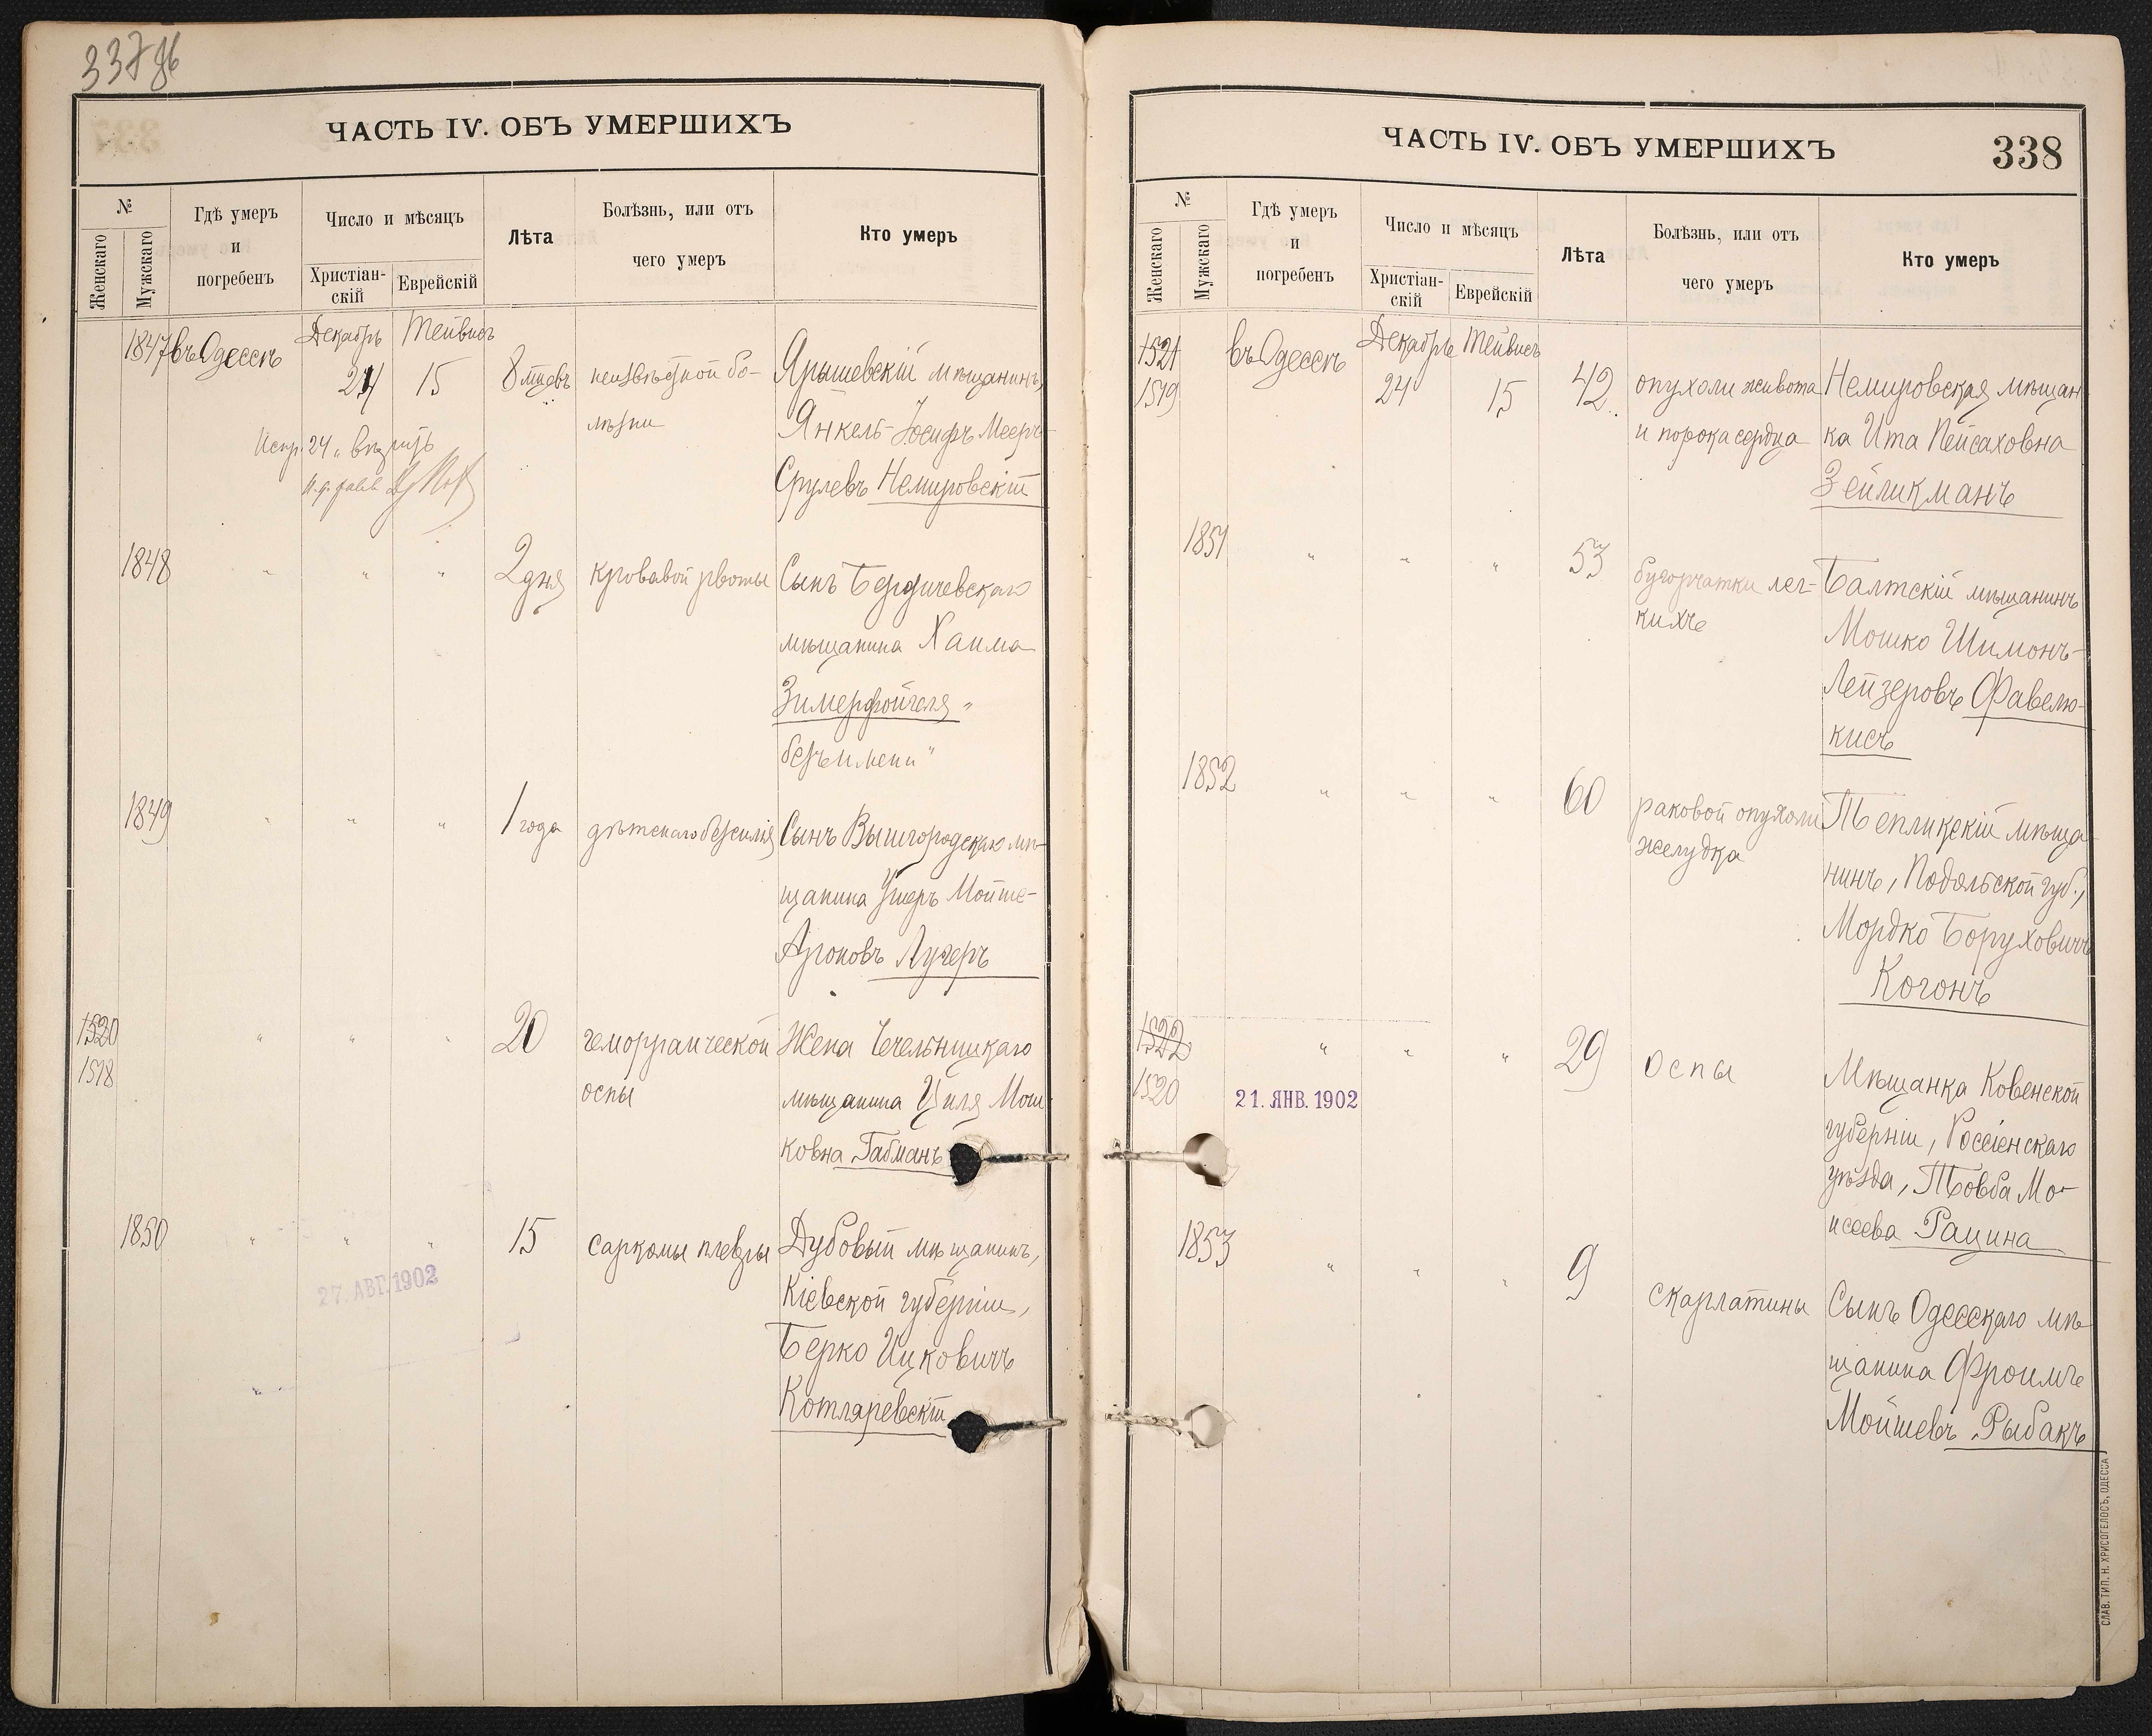 337 об
ЧАСТЬ IV. ОБЪ УМЕРШИХЪ
№
Женскаго
Мужскаго
Гдѣ умеръ
и
погребенъ
Число и мѣсяцъ
Христіан-
скій
Еврейскій
Лѣта
Болѣзнь, или отъ
чего умеръ
Кто умеръ
1847 въ Одессѣ Декабрь Тейвисъ
24 15 8 мцевъ неизвѣстной бо-
лѣзни
Ярышевскій мѣщанинъ,
Янкель-Іосифъ Мееръ-
Срулевъ Немировскій
Испр. 24
1848 " " " 2 дня кровавой рвоты Сынъ Бердичевскаго
мѣщанина Хаима
Зимерфойгеля "
безъ имени "
1849 " " " 1 года дѣтскаго безсилія Сынъ Вышгородскаго мѣ-
щанина Ушеръ Мойше-
Ароновъ Лугеръ
1520 " " " 20 геморраической Жена Чечельницкаго
1518 оспы мѣщанина Циля Мош-
ковна Габманъ
1850 " " " 15 саркомы плевры Дубовый мѣщанинъ,
27. АВГ. 1902
Кіевской губерніи,
Берко Ицковичъ
Котляревскій
ЧАСТЬ IV. ОБЪ УМЕРШИХЪ
338
№
Женскаго
Мужскаго
Гдѣ умеръ
и
погребенъ
Число и мѣсяцъ
Христіан-
скій
Еврейскій
Лѣта
Болѣзнь, или отъ
чего умеръ
Кто умеръ
1521 въ Одессѣ Декабрь Тейвисъ
1519 24 15 42 опухоли живота Немировская мѣщан
и порока сердца ка Ита Пейсаховна
Зейликманъ
1851 " " " 53 бугорчатки лег- Балтскій мѣщанинъ
кихъ Мошко Шимонъ-
Лейзеровъ Фавелю-
кисъ
1852 " " " 60 раковой опухоли Тепликскій мѣща
желудка нинъ, Подольской губ.,
Мордко Боруховичъ
Когонъ
1522 " " " 29 оспы Мѣщанка Ковенской
1520 21. ЯНВ. 1902
губерніи, Россіенскаго
уѣзда, Товба Мо-
исеева Рацина
1853 " " " 9 скарлатины Сынъ Одесскаго мѣ
щанина Фроимъ
Мойшевъ Рыбакъ
СЛАВ. ТИП. Н. ХРИСОГЕЛОСЪ, ОДЕССА